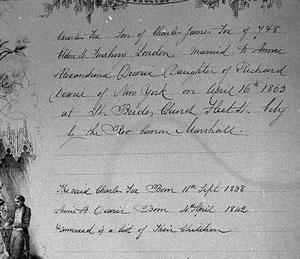 Charles Fox Son of Charles James Fox of 748
London, married to Annie
Alexandrina Daughter of Richard
of New York on April 16th 1863
at St. Brides Church Fleet St. City
by the Rev Canon Marshall.
The said Charles Fox Born 11th Sept 1838
Annie A Born 4th April 1842
Annexed is a list of Their Children